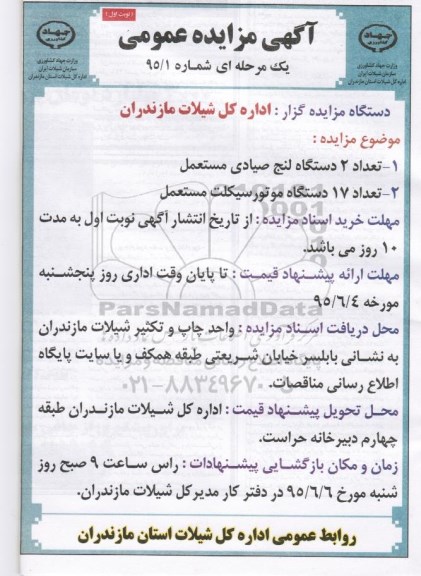 (نوبت اول)
آگهی مزایده عمومی
یک مرحله ای شماره ۹۵/۱
جهاد
وزارت جهاد کشاورزی
سازمان شیلات ایران
اداره کل شیلات استان مازندران
جهاد
وزارت جهاد کشاورزی
سازمان شیلات ایران
اداره کل شیلات استان مازندران
دستگاه مزایده گزار : اداره کل شیلات مازندران
موضوع مزایده :
۱-تعداد ۲ دستگاه لنج صیادی مستعمل
۲-تعداد ۱۷ دستگاه موتورسیکلت مستعمل
مهلت خرید اسناد مزایده : از تاریخ انتشار آگهی نوبت اول به مدت
۱۰ روز می باشد.
مهلت ارائه پیشنهاد قیمت : تا پایان وقت اداری روز پنجشنبه
مورخه ۹۵/۶/۴
محل دریافت اسناد مزایده : واحد چاپ و تکثیر شیلات مازندران
به نشانی بابلسر خیابان شریعتی طبقه همکف و یا سایت پایگاه
اطلاع رسانی مناقصات.
محل تحویل پیشنهاد قیمت : اداره کل شیلات مازندران طبقه
چهارم دبیرخانه حراست.
زمان و مکان بازگشایی پیشنهادات : راس ساعت ۹ صبح روز
شنبه مورخ ۹۵/۶/۶ در دفتر کار مدیرکل شیلات مازندران.
روابط عمومی اداره کل شیلات استان مازندران
ParsNamadData
۰۲۱-۸۸۳۴۹۶۷۰